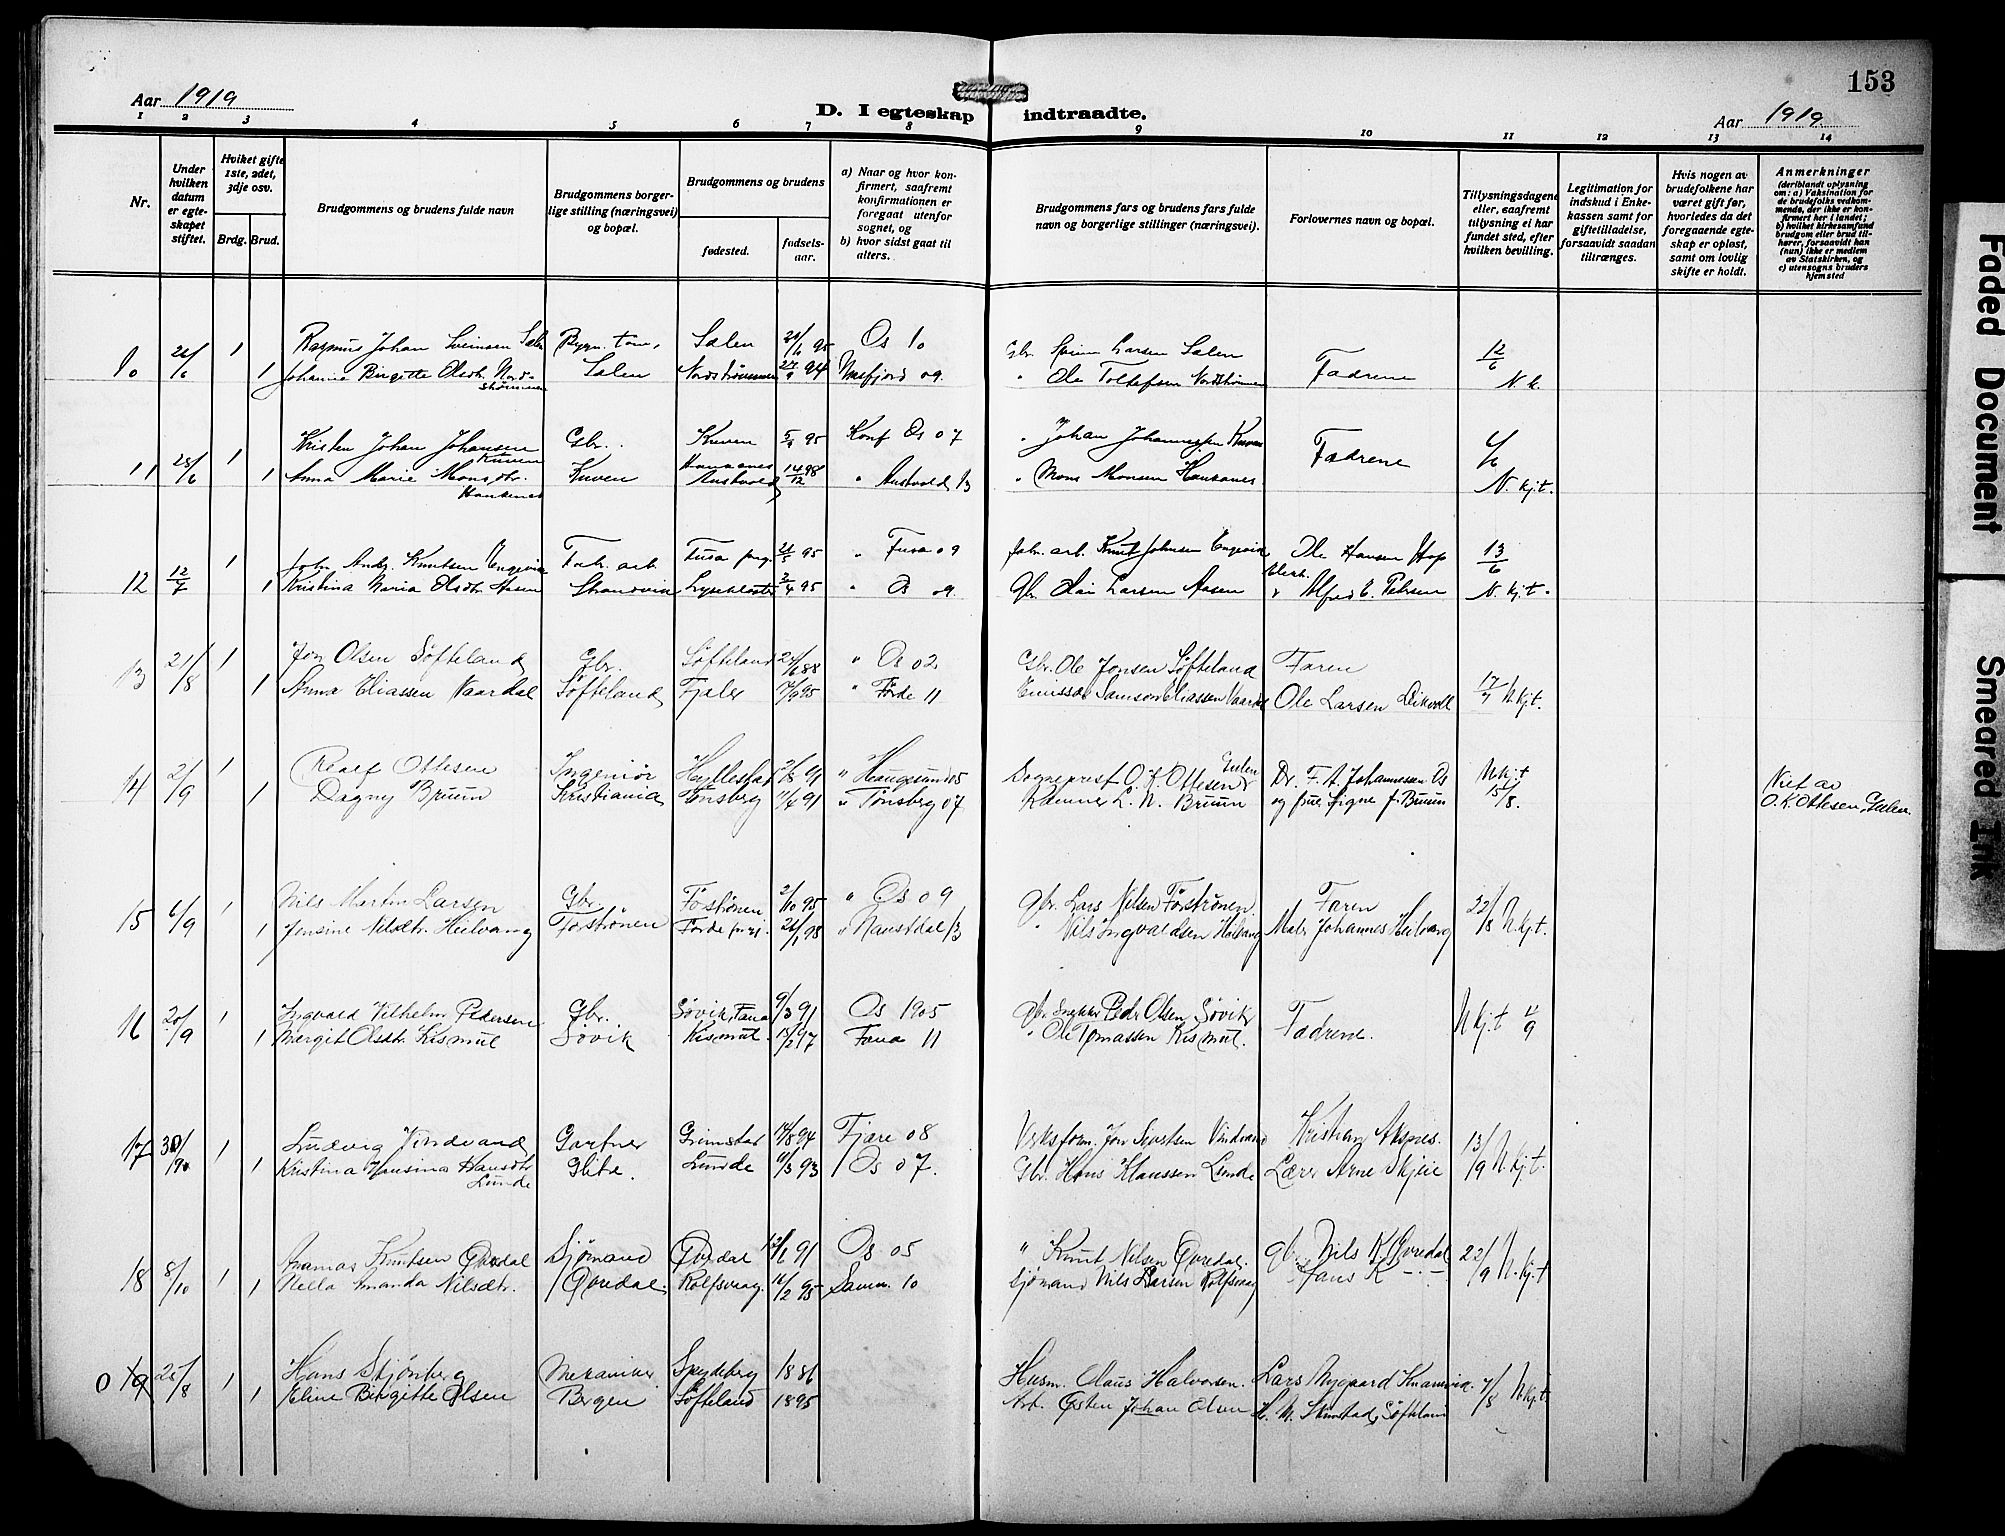 153
Aar 1919
D. I egteskap indtraadte.
Aar 1919.
1 2 3 4 5 6 7 8 9 10 11 12 13 14
Nr.
Under hvilken datum er egteskapet stiftet.
Hvilket gifte 1ste, 2det, 3dje osv.
Brdg. Brud.
Brudgommens og brudens fulde navn
Brudgommens borgerlige stilling (næringsvei) og bopæl.
Brudgommens og brudens
fødested.
fødselsaar.
a) Naar og hvor konfirmert, saafremt konfirmationen er foregaat utenfor sognet, og
b) hvor sidst gaat til alters.
Brudgommens fars og brudens fars fulde navn og borgerlige stillinger (næringsvei).
Forlovernes navn og bopæl.
Tillysningsdagene eller, saafremt tillysning ei har fundet sted, efter hvilken bevilling.
Legitimation for indskud i Enkekassen samt for giftetilladelse, forsaavidt saadan tiltrænges.
Hvis nogen av brudefolkene har været gift før, hvorledes da det foregaaende egteskap er opløst, samt om lovlig skifte er holdt.
Anmerkninger
(deriblandt oplysning om: a) Vaksination for de brudefolks vedkommende, der ikke er konfirmert her i landet; b) hvilket kirkesamfund brudgom eller brud tilhører, forsaavidt han (hun) ikke er medlem av Statskirken, og c) utensogns bruders hjemsted
10 1 Rasmus Johan Sveinsen Salen Salen Os 10 Gbr. Svein Larsen Salen 12/6
1 Johanne Birgitte Olsdtr. Nordstrønnen Salen 94 09. " Ole Nordstrønen Fædrene N.k.
11 1 Kristen Johan Johansen Kuven Gbr. Kuven 95 Konf Os 07 " Johan Johannessen Kuven Fædrene
1 Anna Marie Monsdtr. Haukenes Kuven 14/12 98 " Austvold 13 " Mons Monsen Haukanes N. kj.t.
12 12/7 1 Knutsen Engevik Fab. arb. Fusa 95 " Fusa 09 Fabr. arb. Knut Johnsen Engevik Ole Hansen Hop 13/6
1 Kristina Maria Olsdtr. Aasen Strandvik Lysekloster 2/4 95 " Os 09. Gbr. Olai Larsen Aasen Alfred E. Petersen N. kj.t.
13 21/8 1 Jon Olsen Søfteland Gbr. Søfteland 88 " Os 02 Gbr. Ole Jonsen Søfteland Faren
1 Anna Eliassen Vaardal Søfteland Fjaler 95 " Førde 11 Emissær Samson Eliassen Vaardal Ole Larsen 17/7 N. kj.t.
14 2/9 1 Ottesen Ingeniør Hyllestad 91 " Haugesund 05 Sogneprest O. K. Ottesen Gulen Dr. F. A. Johannessen Os N. kj.t
1 Dagny Bruun Kristiania Tønsberg 11/4 91 " Tønsberg 07 Kæmner L. N. Bruun og frue Signe J. Bruun 15/8. Viet av O. K. Ottesen, Gulen.
15 6/9 1 Nils Martin Larsen Gbr. Forstrønen 2/10 95 " Os 09 Gbr. Lars Nilsen Forstrønen Faren 22/8
1 Jensine Nilsdtr. Heilvang Forstrønen Førde 98 " Naustdal 13 " Nils Ingvaldsen Heilvang Maler Johannes Heilvang N. kj.t.
16 20/9 1 Ingvald Vilhelm Pedersen Gbr. Søvik, Fana 9/3 91 Os 1905 Gbr. Snekker Peder Olsen Søvik N. kj.t
1 Margit Olsdtr. Kismul Søvik Kismul. 97 Fana 11 " Ole Tomassen Kismul. Fædrene.
17 1 Ludvig Vindvand Gartner Grimstad 14/8 94 Fjære 08 Verksform. Vindvand Kristian 13/9
1 Kristina Hansina Hansdtr. Lunde Lunde 11/3 93 Os 07. Gbr. Hans Klaussen Lunde Lærer Arne Skjeie N. kj.t.
18 8/10 1 Knutsen Øvredal Sjømand Øvredal 91 Os 05 " Knut Nilsen Øvredal. gbr. Nils K. Øvredal 22/9
1 Nella Amanda Nilsdtr. Øvredal. Rolfsvaag. 95 10 Sjømand Nils Larsen Rolfsvaag Hans K — " — N. kj.t
0 19 25/8 1 Hans Skjønberg Mekaniker. Spydeberg 1886 Husm. Claus Halvorsen. Lars Nygaard 7/8
1 Eline Birgitte Olsen Bergen Søfteland 1895 Arb. Østen Johan Olsen Søfteland N. kj.t.
Faded Document
Smeared Ink